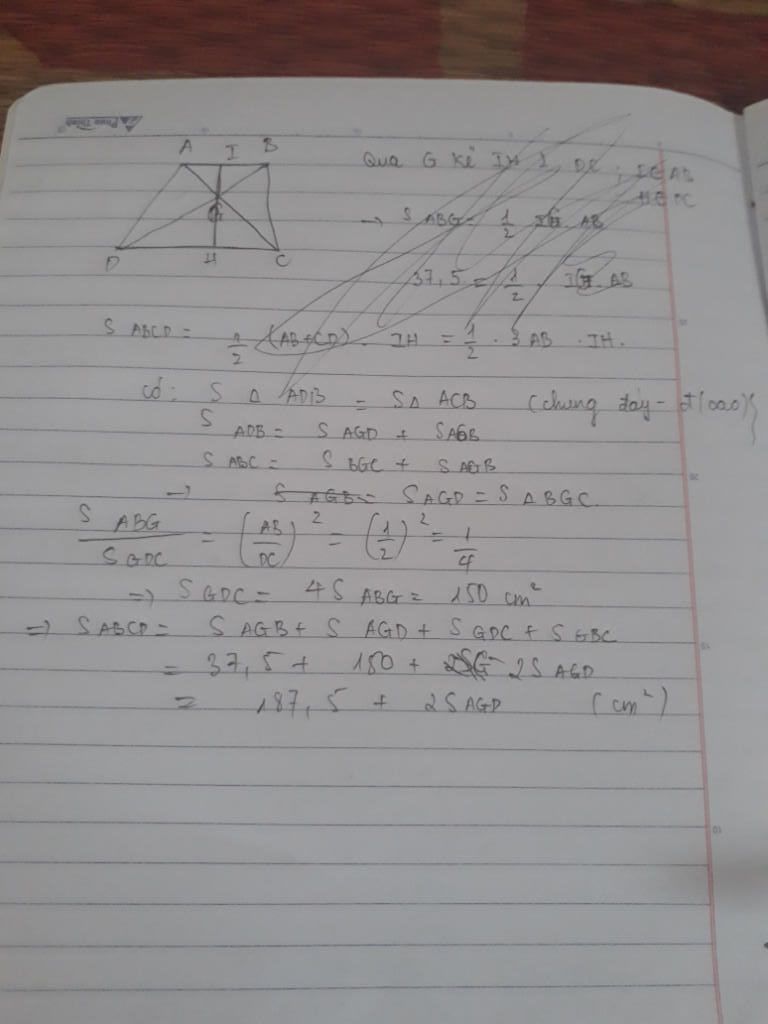 A I B
G
D H C
Qua G kẻ IH ⊥ DC ; I ∈ AB
H ∈ DC
→ S ABG = 1/2 IG . AB
37,5 = 1/2 . IG . AB
S ABCD = 1/2 (AB + CD) . IH = 1/2 . 3 AB . IH.
có: S Δ ADB = S Δ ACB (chung đáy -
S ADB = S AGD + S AGB
S ABC = S BGC + S AGB
→ S AGB = S AGD = S Δ BGC
S ABG / S GDC = (AB/DC)² = (1/2)² = 1/4
=> S GDC = 4 S ABG = 150 cm²
=> S ABCD = S AGB + S AGD + S GDC + S GBC
= 37,5 + 150 + 2 S AGD
= 187,5 + 2 S AGD (cm²)